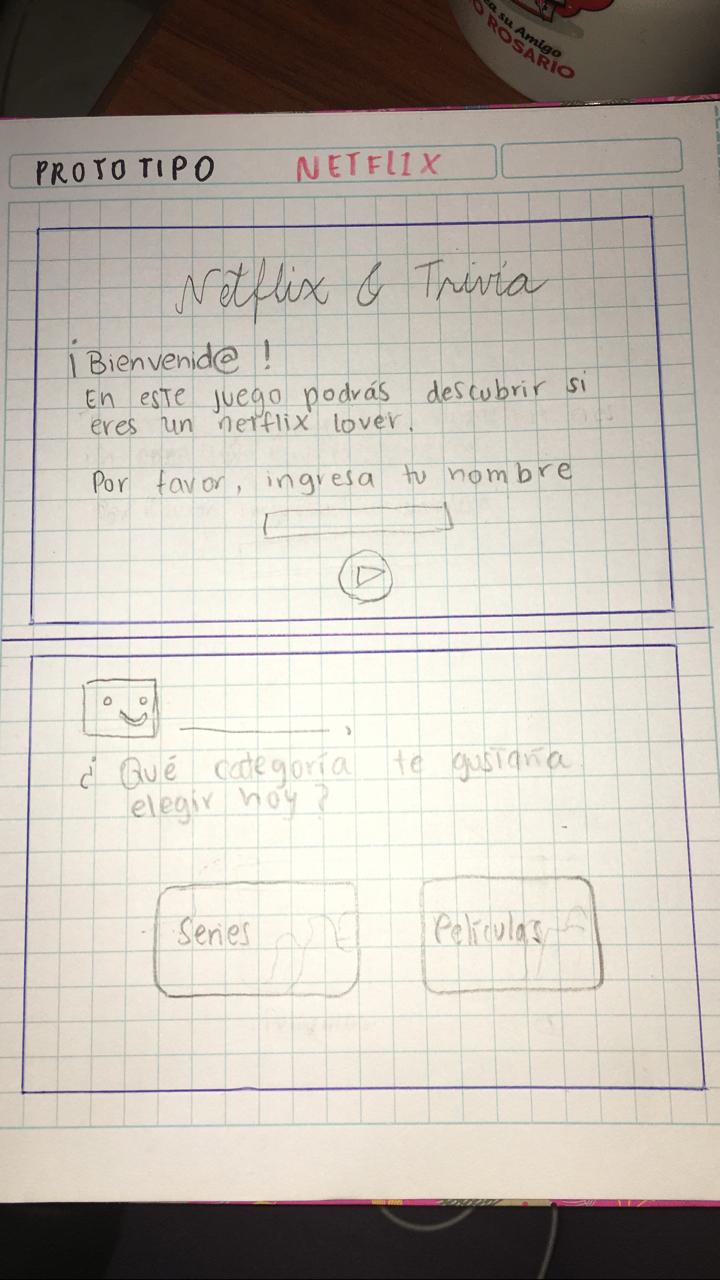 a su Amigo
O ROSARIO
PROTOTIPO NETFLIX
Netflix & Trivia
¡Bienvenid@!
En este juego podrás descubrir si
eres un netflix lover.
Por favor, ingresa tu nombre
___________,
¿Qué categoría te gustaría
elegir hoy?
Series Películas